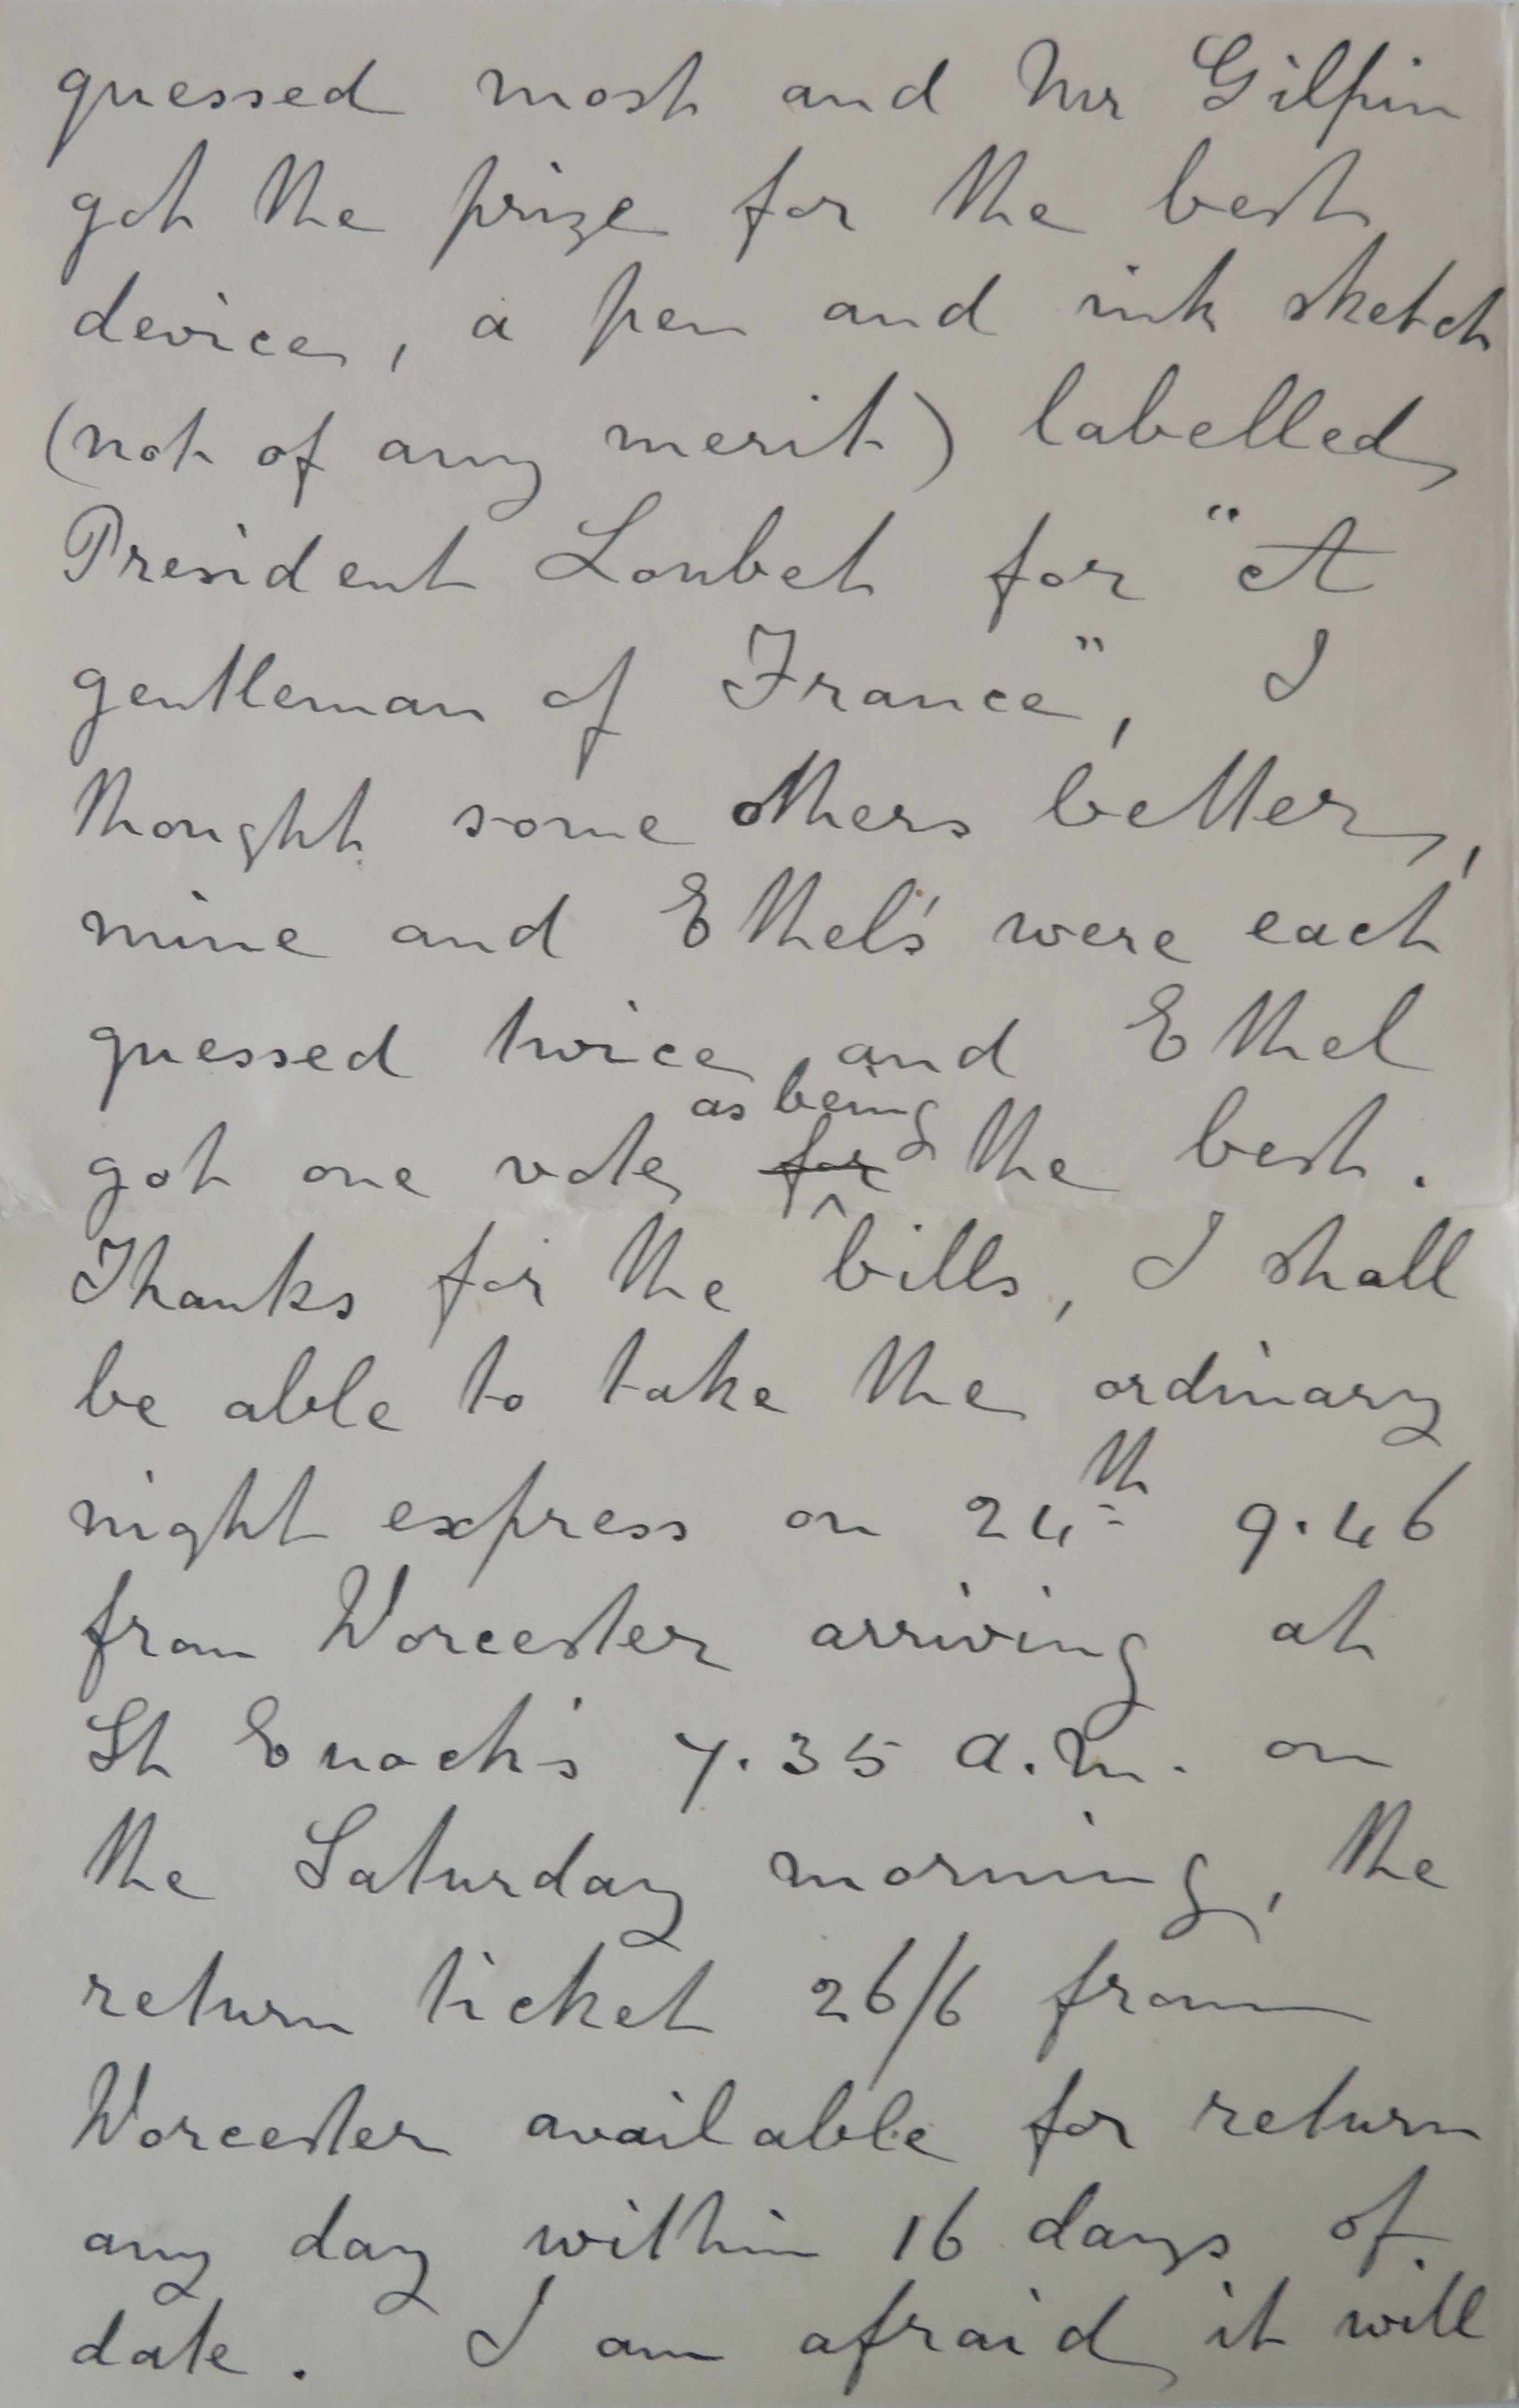 guessed most and Mr Gilpin
got the prize for the best
device, a pen and ink sketch
(not of any merit) labelled
President Loubet for "A
gentleman of France", I
thought some others better,
mine and Ethel's were each
guessed twice and Ethel
as being
got one vote for the best.
Thanks for the bills, I shall
be able to take the ordinary
night express on 24th 9.46
from Worcester arriving at
St Enoch's 7.35 a.m. on
the Saturday morning, the
return ticket 26/6 from
Worcester available for return
any day within 16 days of
date. I am afraid it will